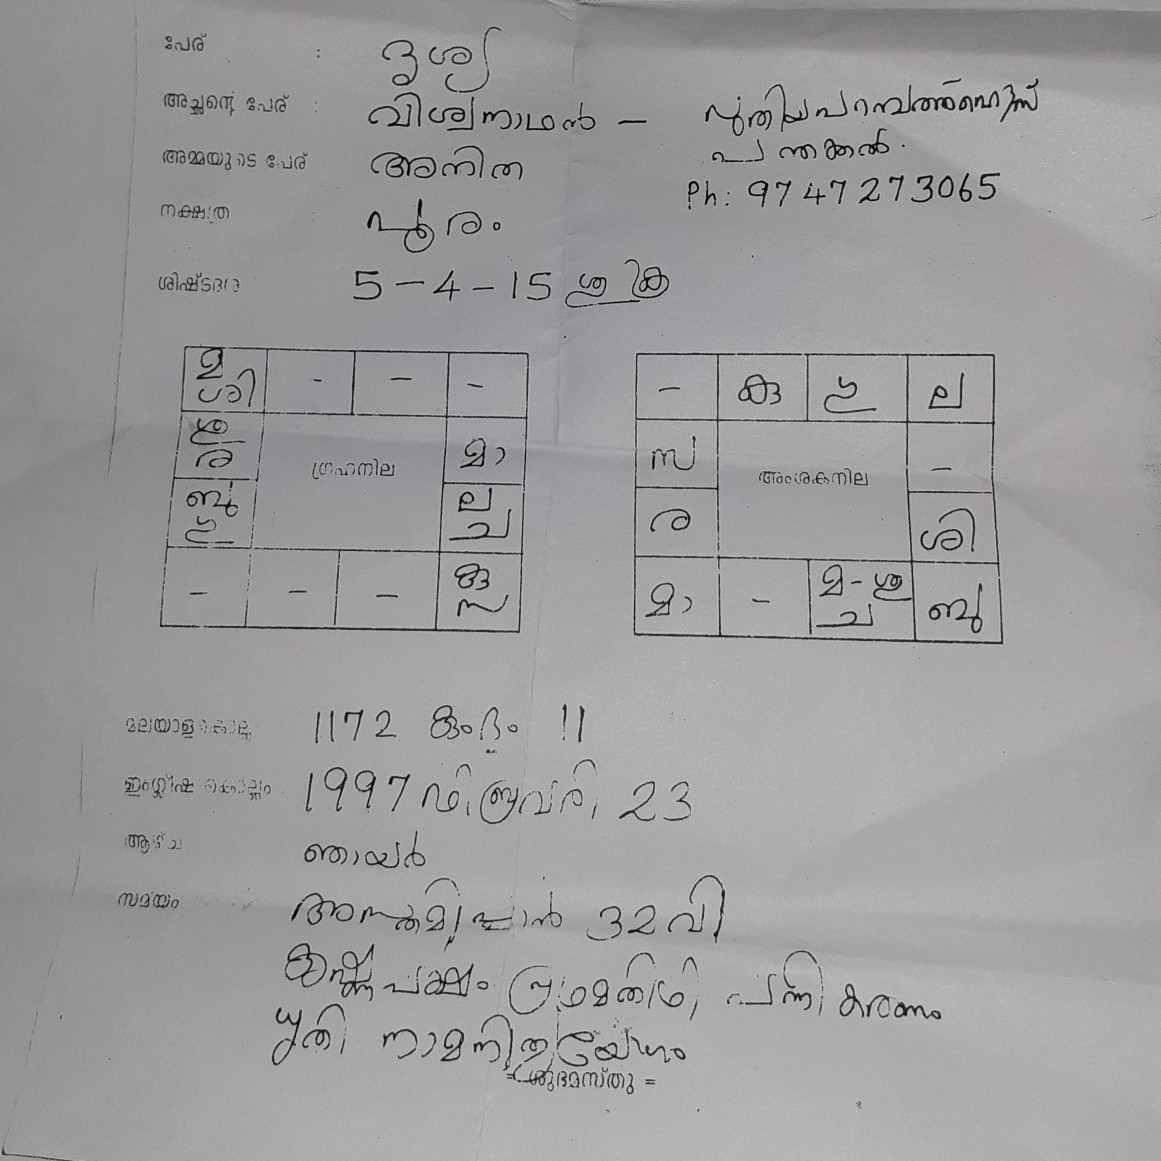 പേര് : ദൃശ്യ
അച്ഛന്റെ പേര് : വിശ്വനാഥൻ – പുതിയപറമ്പത്ത്ഹൌസ്
പന്തക്കൽ.
അമ്മയുടെ പേര് അനിത
Ph: 9747273065
നക്ഷത്ര : പൂരം
ശിഷ്ടദശ 5-4-15 ശുക്ര
മ ശി - - - - കു ഗു ല
ശു ര ഗ്രഹനില മാ സ അംശകനില -
ബു ഗു ല ച ര ശി
- - - കു സ മാ - മ-ശു ച ബു
മലയാളകൊല്ലം 1172 കുംഭം 11
ഇംഗ്ലീഷ കൊല്ലം 1997 ഫിബ്രവരി 23
ആഴ്ച ഞായർ
സമയം അസ്തമിപ്പാൻ 32 വി
കൃഷ്ണപക്ഷം പ്രഥമതിഥി പന്നി കരണം
ധൃതി നാമനിത്യയോഗം
= ശുഭമസ്തു =